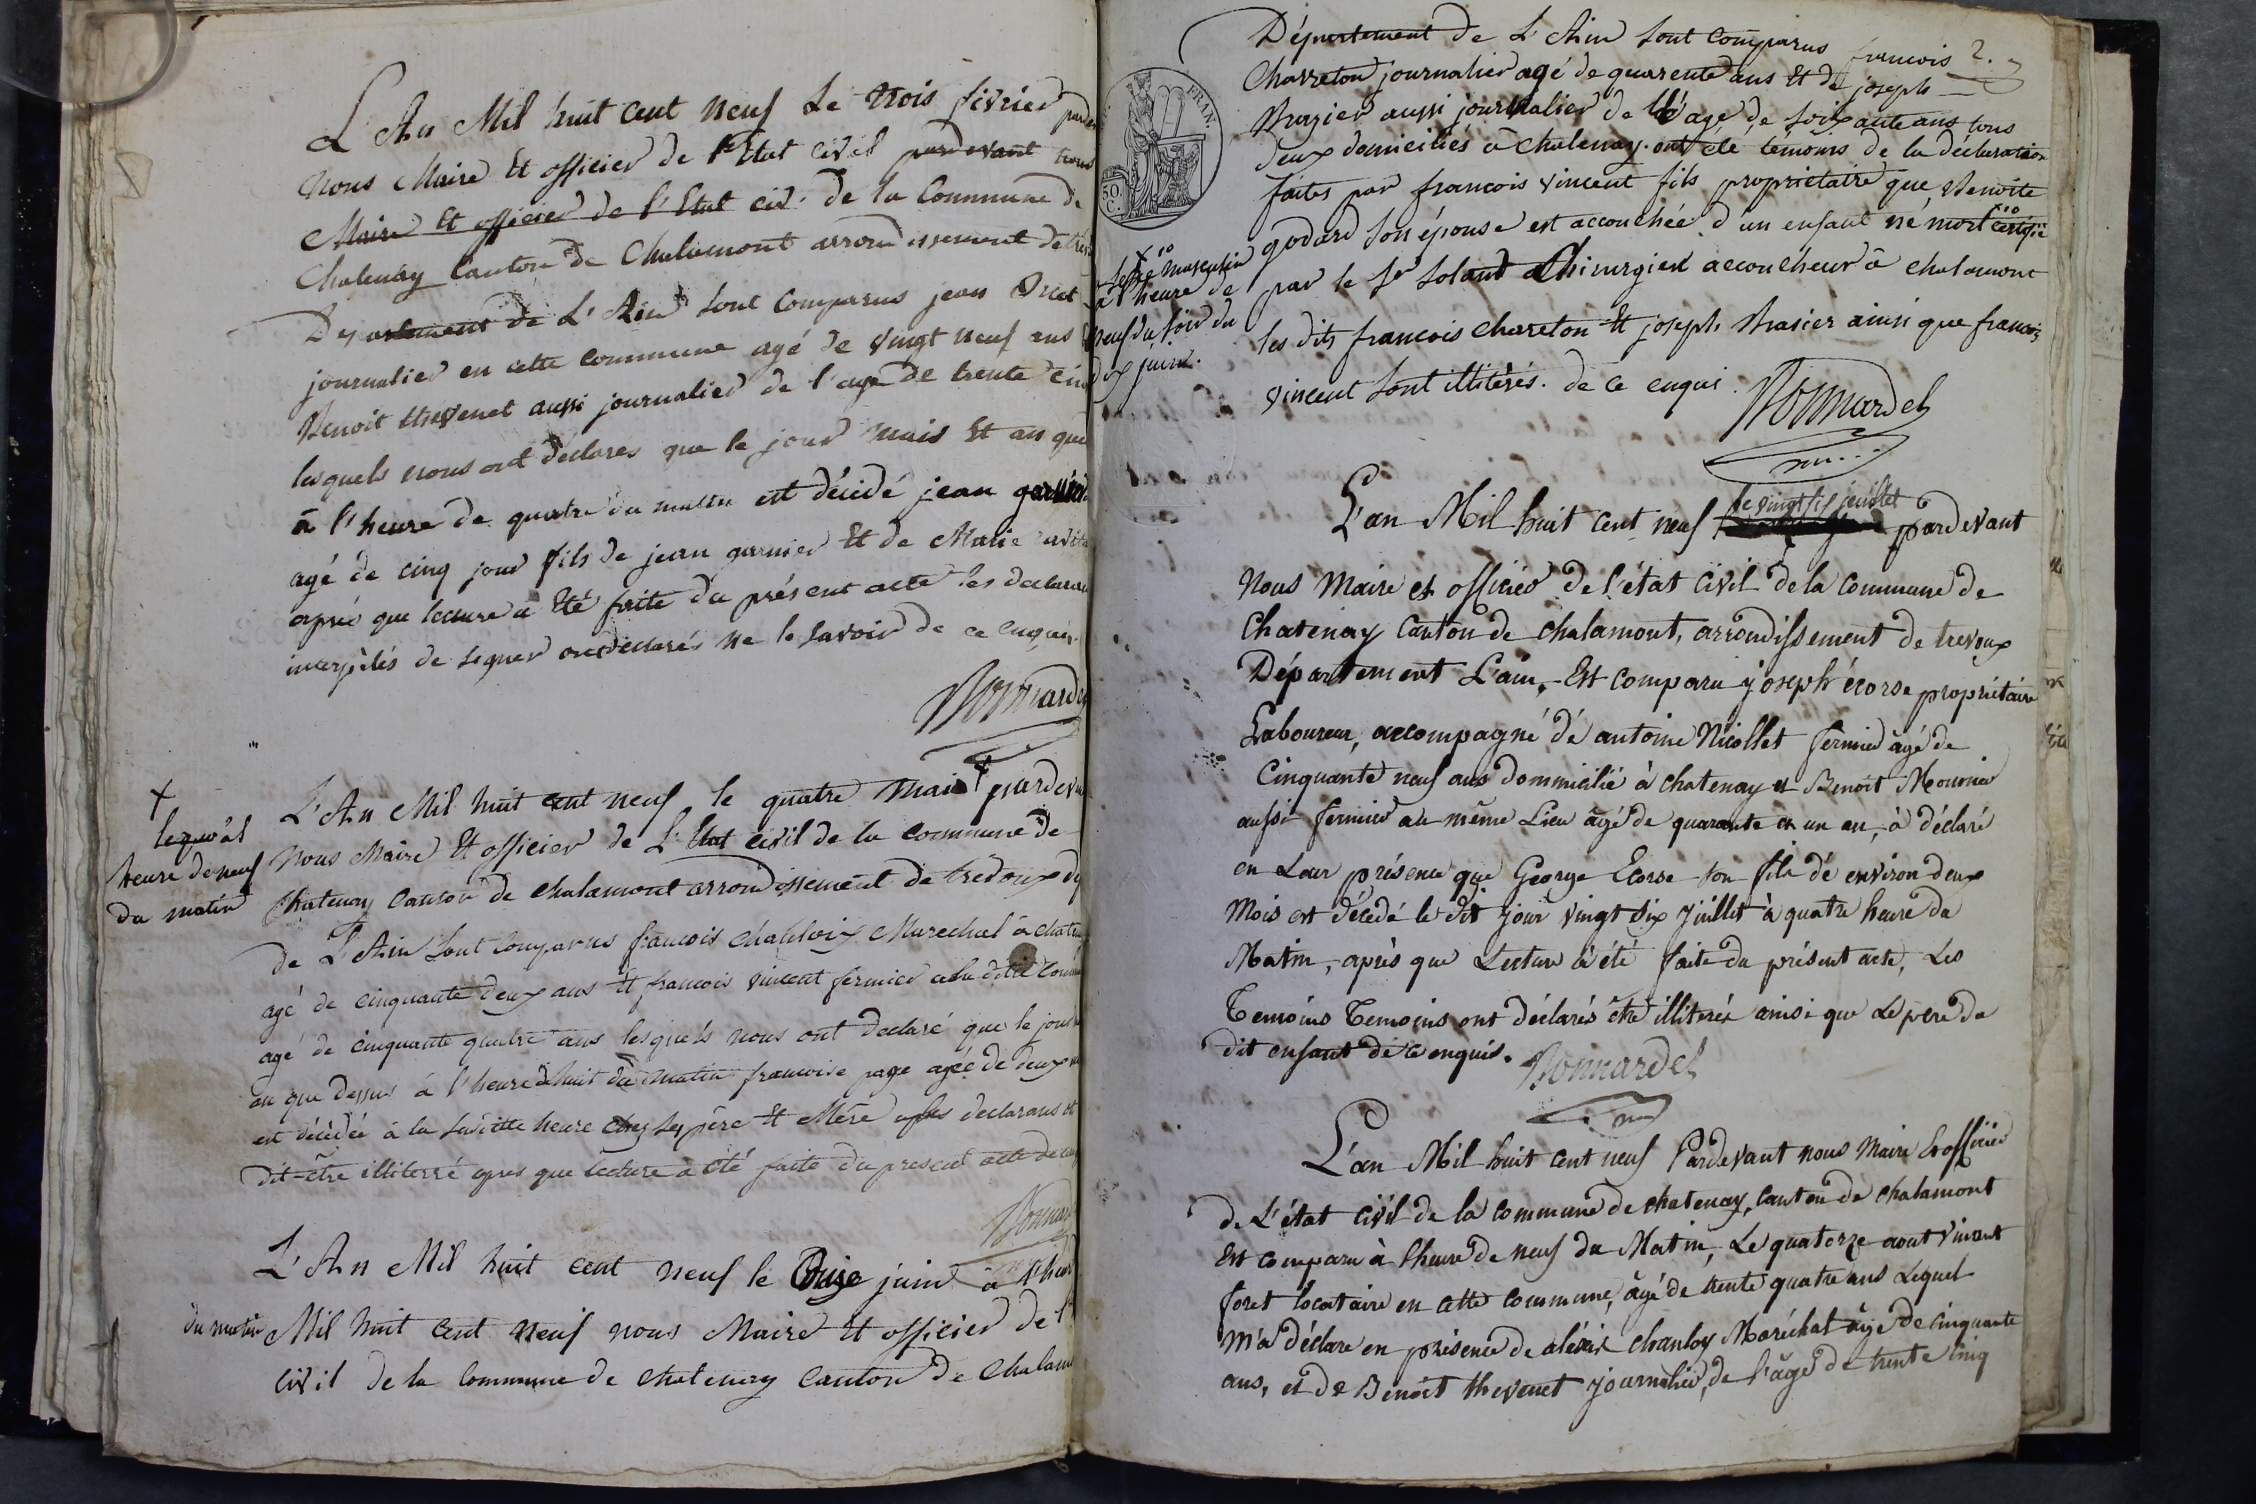 L'An Mil huit cent neuf Le trois fivrier
Nous Maire Et officier de l'Etat civil pardevant nous
Maire Et officier de l'Etat civ. de la Commune de
Chatenay Canton de Chalamont arrondissement de
Departement de L'Ain sont Comparus jean
journalier en cette commune agé de vingt neuf ans
Benoit thevenet aussi journalier de l'age de trente
lesquels nous ont déclarés que le jour mois Et an que
à l'heure de quatre du matin est décidé jean garnier
agé de cinq jour fils de jean garnier Et de Marie
aprés que lecture a Eté faite du présent acte les
interpélés de signer ont declarés ne le savoir de ce enquis.
Bonnardel
X
lequel
heure de neuf
du matin
L'An Mil huit cent neuf le quatre Mai
Nous Maire Et officier de L'Etat civil de la commune de
Chatenay canton de chalamont arrondissement de trévoux
de L'Ain sont Comparus francois chanloix Marechal à
agé de cinquante deux ans Et francois vincent fermier
agé de cinquante quatre ans lesquels nous ont declaré que le jour
an que dessus à l'heure de huit du matin francoise page agée de deux
est décédée à la susditte heure chez ses père Et Mére les declarans
dit être illiterré apres que lecture a été faite du present acte
Bonnar
L'An Mil huit cent neuf le Onze juin à
du matin Mil huit cent neuf nous Maire Et officier de
civil de la Commune de chatenay canton de
Département de L'Ain sont Comparus francois 2.
Charreton journalier agé de quarente ans Et de joseph
Brazier aussi journalier de l'age de soixante ans tous
deux domiciliés à chatenay. ont été témoins de la déclaration
faites par francois vincent fils propriétaire que Benoite
godard son épouse est accouchée d'un enfant né mort certifié
par le Sr Soland Chirurgien accoucheur à chalamont
les dits francois chareton Et joseph Brasier ainsi que francois
vincent sont illitérés. de ce enquis. Bonnardel
50
C.
FRAN.
sexe masculin
à l'heure de
neuf du soir du
dix juin.
L'an Mil huit cent neuf le vingt six juillet pardevant
Nous Maire et officier de l'état civil de la Commune de
Chatenay Canton de chalamont, arrondissement de trevoux
Département L'ain, Est Comparu joseph écorse propriétaire
Laboureur, accompagné dé antoine Nicollet fermier âgé de
Cinquante neuf ans dommicilié à chatenay et Benoit Mournier
aussi fermier au même Lieu âgé de quarante et un an, à déclaré
en Leur présence que George Ecorse son fils dé environ deux
Mois est décedé le dit jour vingt six juillet à quatre heure du
Matin, après que Lecture à été faite du présent acte, Les
Temoins Temoins ont déclarés être illiterés ainsi que Le pere du
dit enfant de ce enquis. Bonnardel
L'an Mil huit cent neuf Pardevant nous Maire Et officier
de L'état civil de la commune de chatenay, canton de chalamont
Est comparu à l'heure de neuf du Matin, Le quatorze aout vincent
foret locataire en cette commune, âgé de trente quatre ans Lequel
m'a déclare en présence de aléxis chanloy Maréchal âgé de cinquante
ans, et de Benoit thevenet journalier, de l'âge de trente cinq